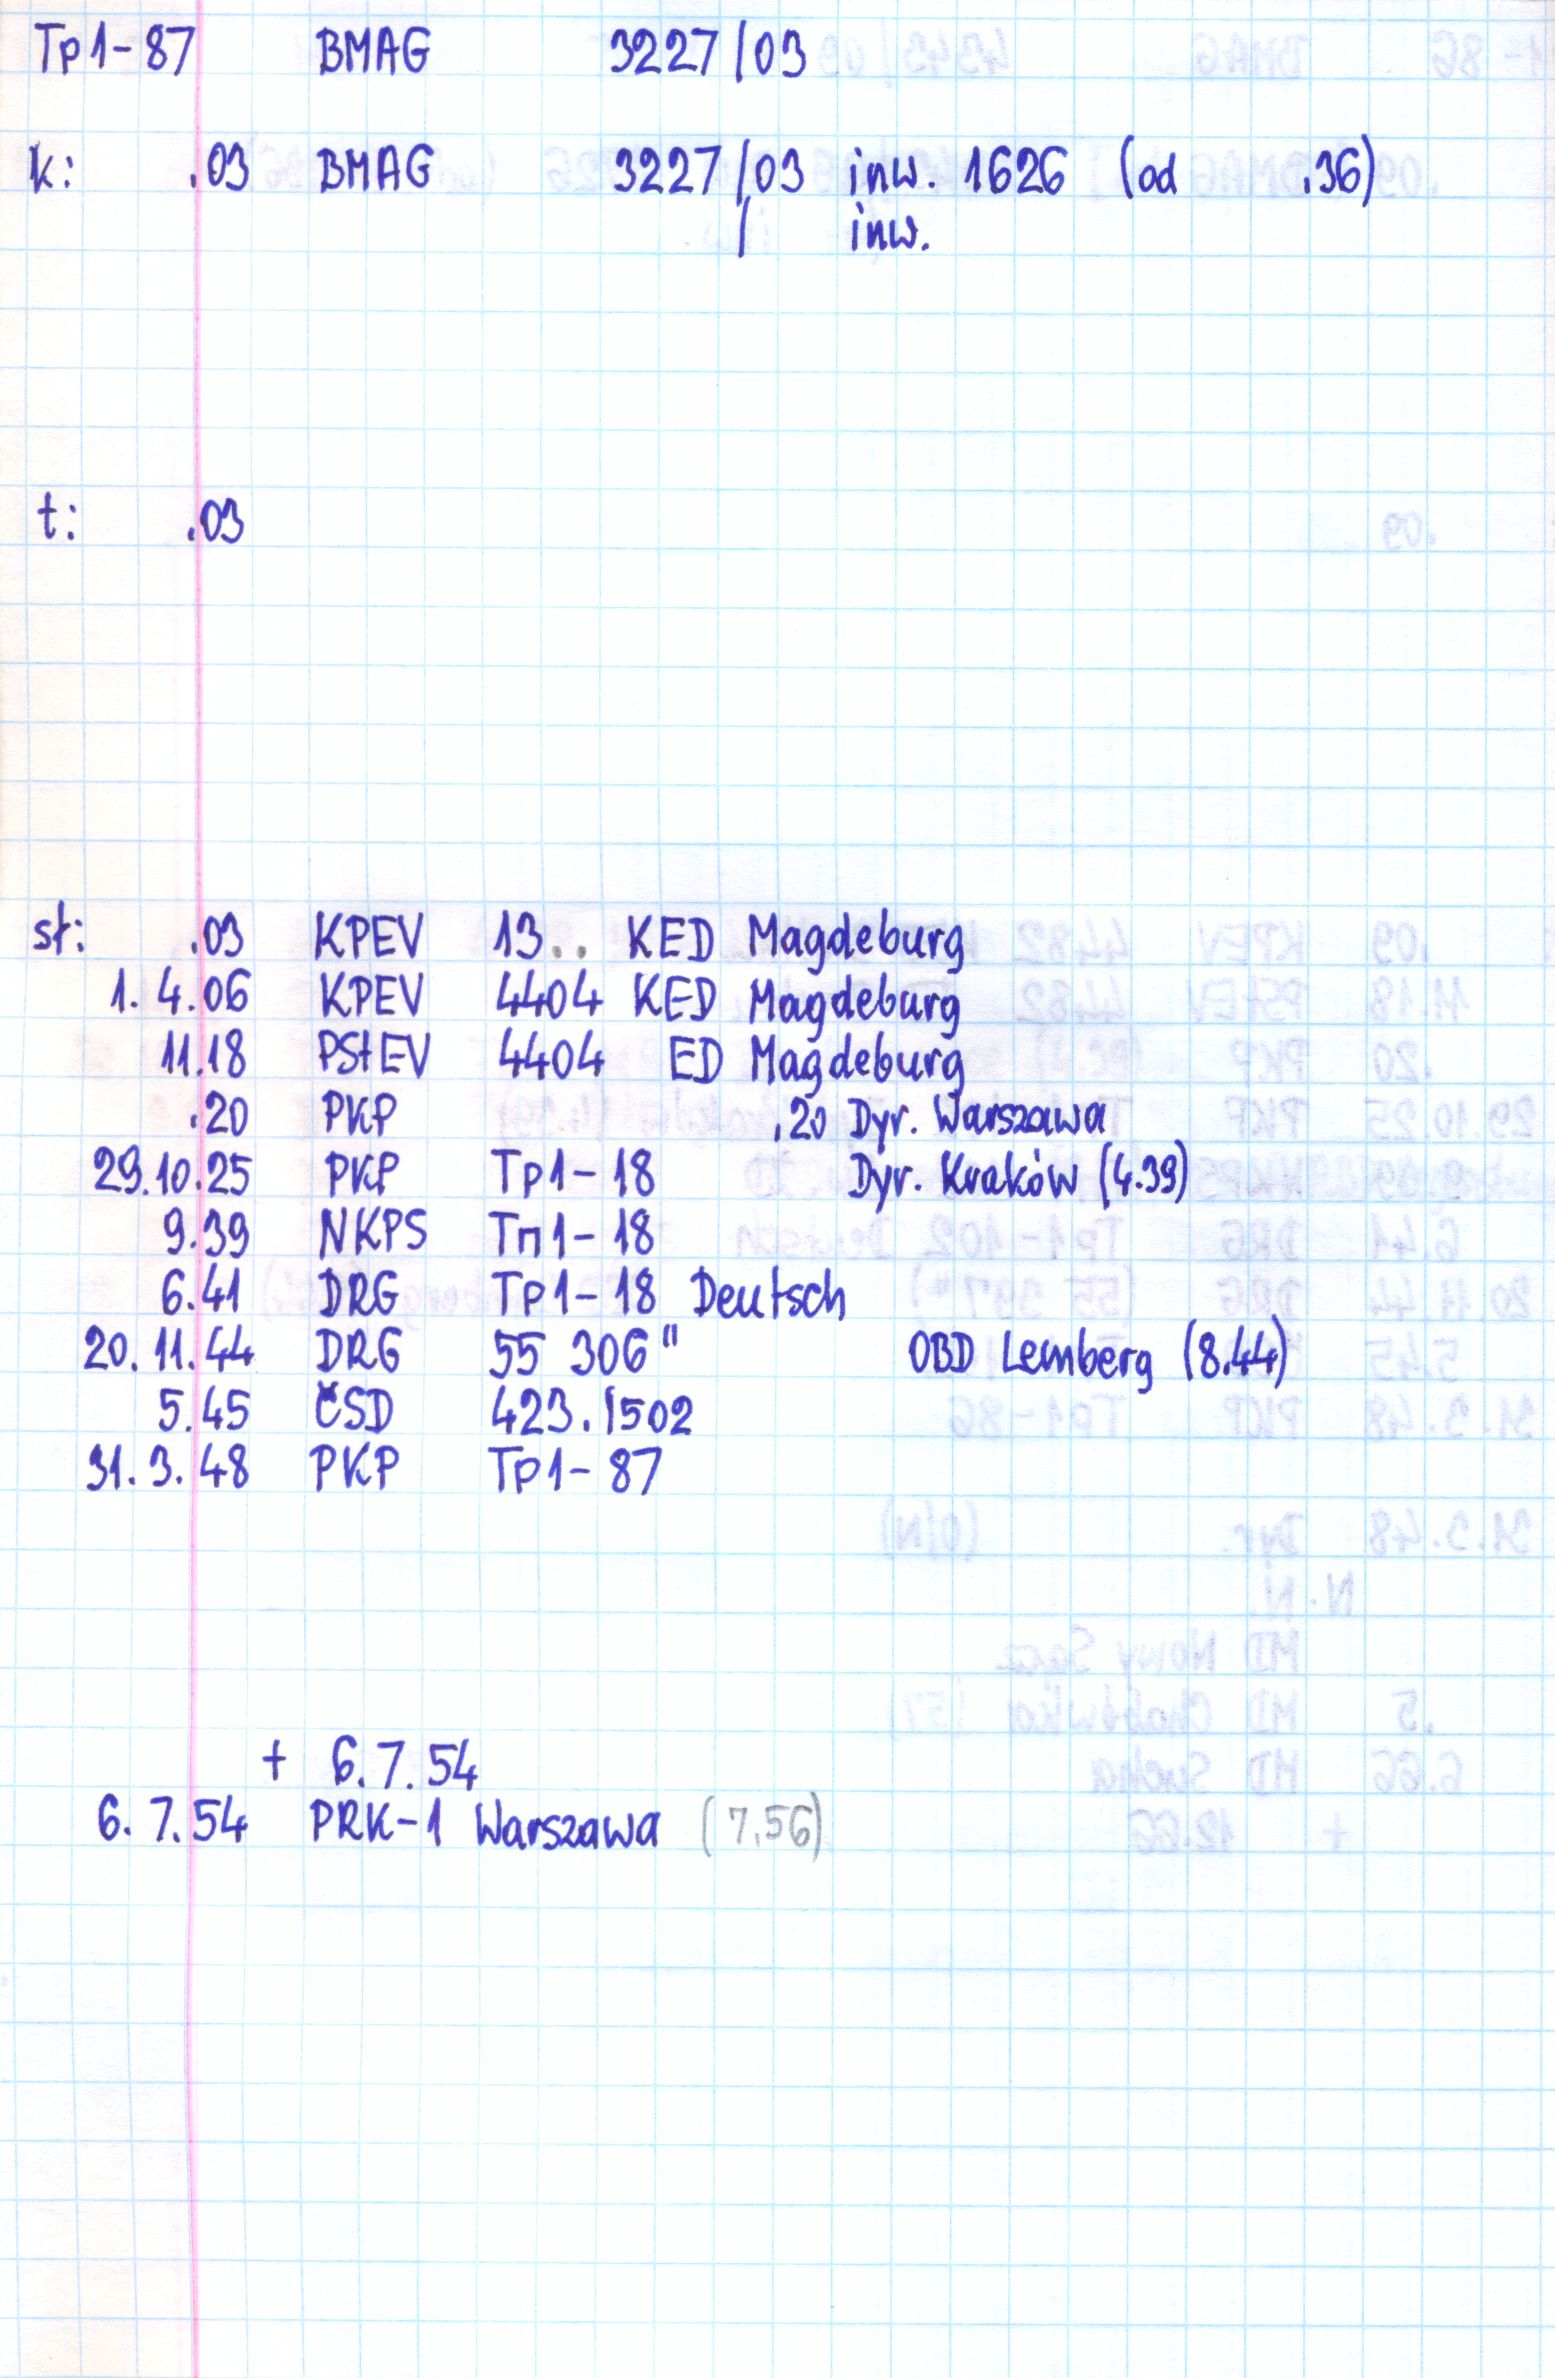 Tp1-87 BMAG 3227/03
k: .03 BMAG 3227/03 inw. 1626 (od .36)
/ inw.
t: .03
st: .03 KPEV 13.. KED Magdeburg
1. 4.06 KPEV 4404 KED Magdeburg
11.18 PStEV 4404 ED Magdeburg
.20 PKP .20 Dyr. Warszawa
29.10.25 PKP Tp1-18 Dyr. Kraków (4.39)
9.39 NKPS Тп1-18
6.41 DRG Tp1-18 Deutsch
20.11.44 DRG 55 306" OBD Lemberg (8.44)
5.45 ČSD 423.1502
31.3.48 PKP Tp1-87
+ 6.7.54
6.7.54 PRK-1 Warszawa (7.56)